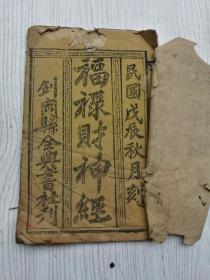 民國戊辰秋月刻
福祿財神經
劍閣縣全興書社刊